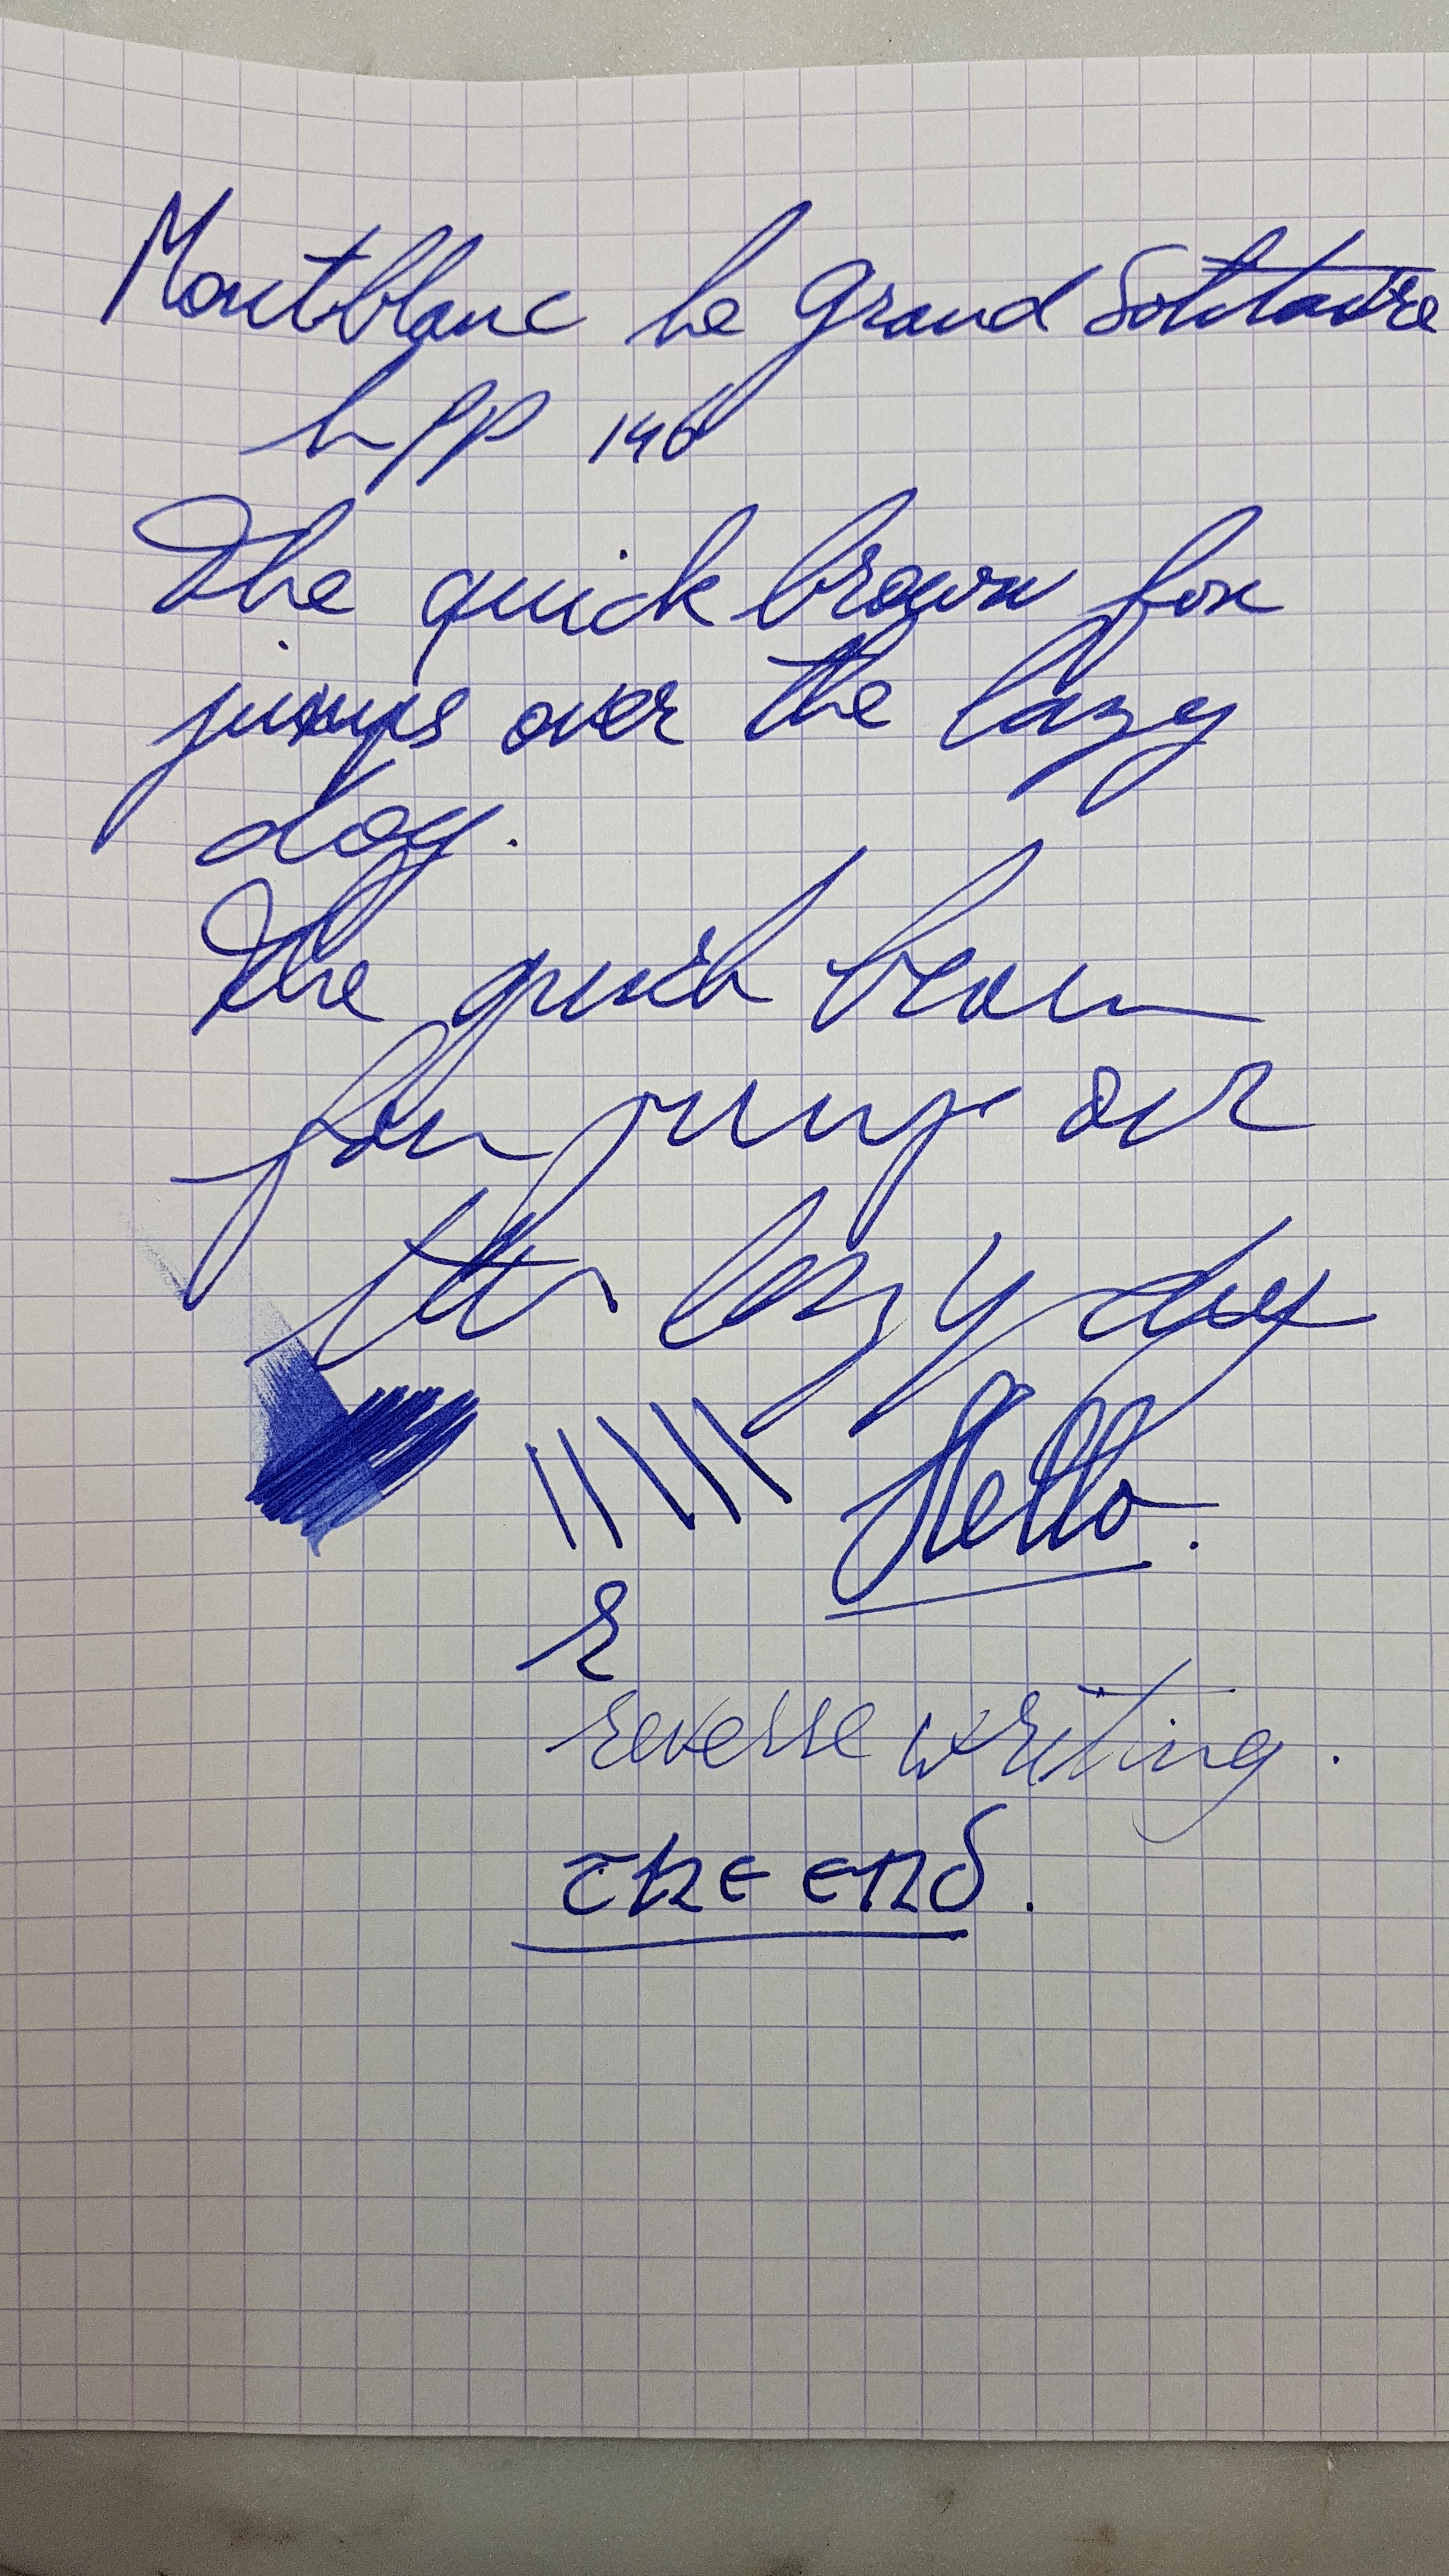 Montblanc Le Grand Solitaire
LGP 146
The quick brown fox
jumps over the lazy
dog.
The quick brown
fox jumps over
the lazy dog
Hello.
R
reverse writing.
The end.